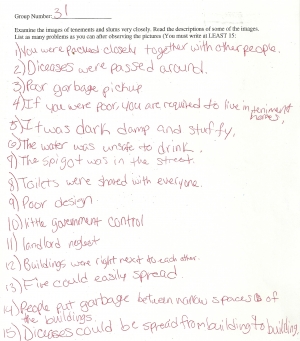 Group Number: 31
Examine the images of tenements and slums very closely. Read the descriptions of some of the images.
List as many problems as you can after observing the pictures (You must write at LEAST 15:
1) You were packed closely together with other people.
2) Diceases were passed around.
3) Poor garbage pickup
4) If you were poor, you are required to live in teniment homes,
5) It was dark damp and stuffy.
6) The water was unsafe to drink.
7) The spigot was in the street.
8) Toilets were shared with everyone.
9) Poor design
10) little government control
11) landlord neglect
12) Buildings were right next to each other.
13) Fire could easily spread.
14) People put garbage between narrow spaces of
the buildings.
15) Diceases could be spread from building to building